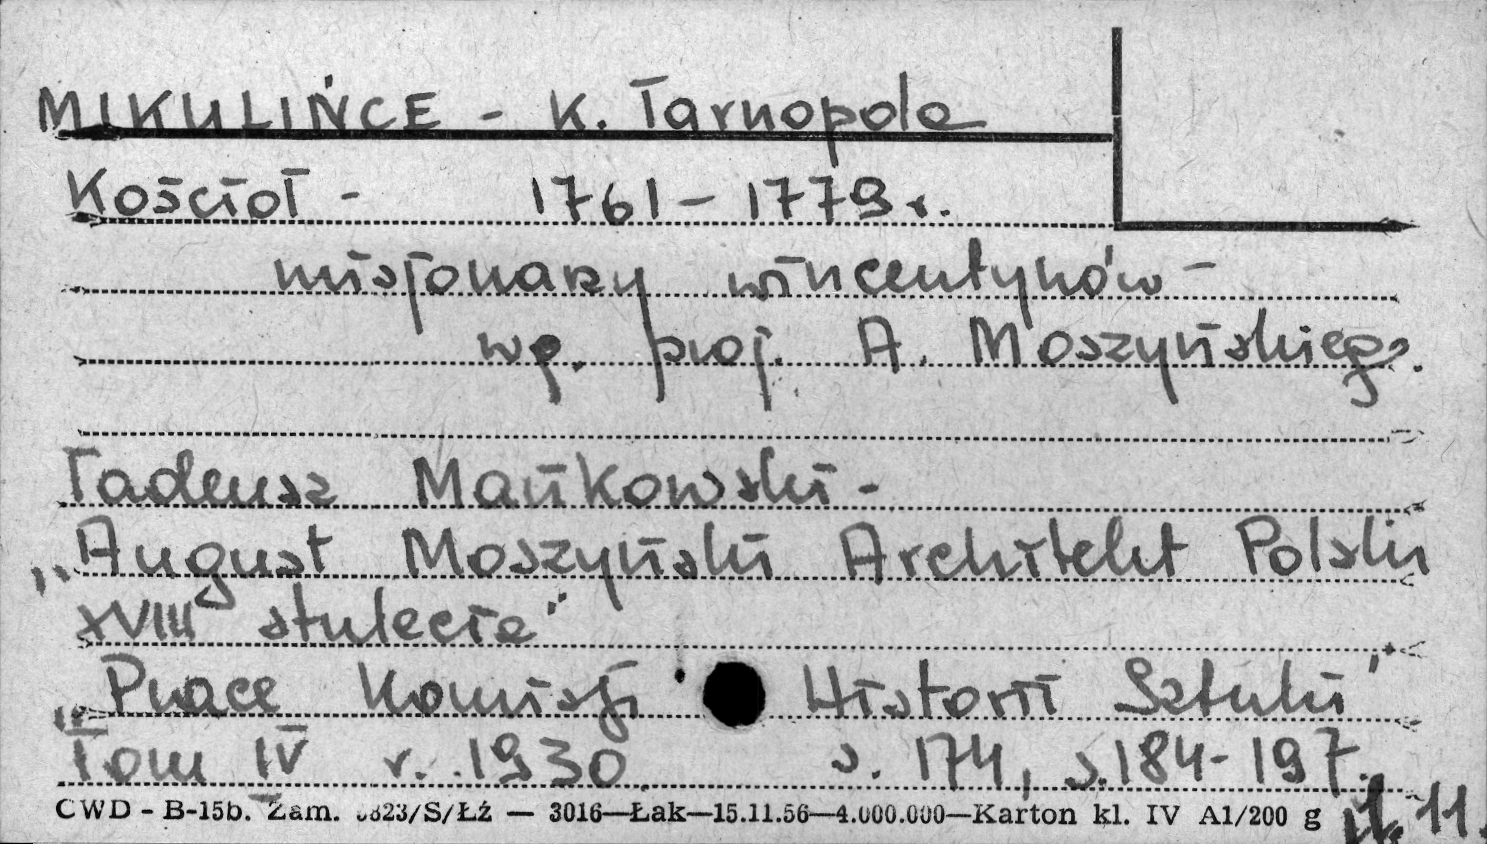 MIKULIŃCE - K. Tarnopola
Kościół - 1761-1779 r.
misjonarzy wincentynów -
wg. proj. A. Moszyńskiego.
Tadeusz Mańkowski -
„August Moszyński Architekt Polski
XVIII stulecia"
„Prace Komisji Historii Sztuki"
Tom IV r. 1930 s. 174, s. 184-197.
CWD - B-15b. Zam. 823/S/Łź — 3016—Łak—15.11.56—4.000.000—Karton kl. IV A1/200 g
11.